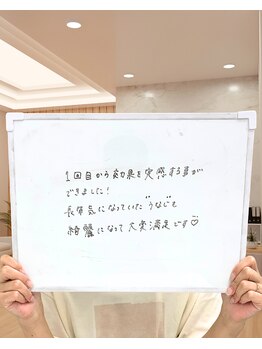 1回目から効果を実感する事が
できました!
長年気になっていたうなじも
綺麗になって大変満足です♡